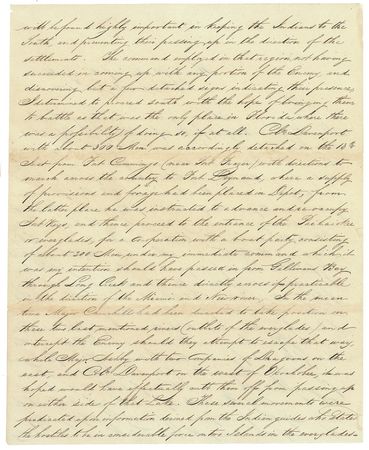 will be found highly important in keeping the Indians to the
South, and preventing their passing up in the direction of the
settlements. The command employed in that region not having
succeeded in coming up with any portion of the Enemy and
discovering but a few detached signs indicating their presence,
I determined to proceed south with the hope of bringing them
to battle as that was the only place in Florida where there
was a possibility of doing so, if at all. Col. Davenport
with about 500 Men was accordingly detached on the 13th
Inst from Fort Cummings (near Fort Frazer) with directions to
march across the country to Fort Raynaud, where a supply
of provisions and forage had been placed in Depot, from
the latter place he was instructed to advance and
and thence proceed to the entrance of the
or everglades, for a co operation with a boat party consisting
of about 200 Men under my immediate command which it
was my intention should have passed in from Gallivans Bay
through Long Creek and thence directly across if practicable
in the direction of the Miami and New river. In the mean
time Major Churchill had been directed to take position on
these two last mentioned rivers (outlets of the everglades) and
intercept the Enemy should they attempt to escape that way
while Major with two Companies of Dragoons on the
east, and Col. Davenport on the west of it was
hoped would have effectually cut them off from passing up
on either side of that Lake. These several movements were
predicated upon information derived from the Indian guides who stated
the hostiles to be in considerable force on two Islands in the everglades